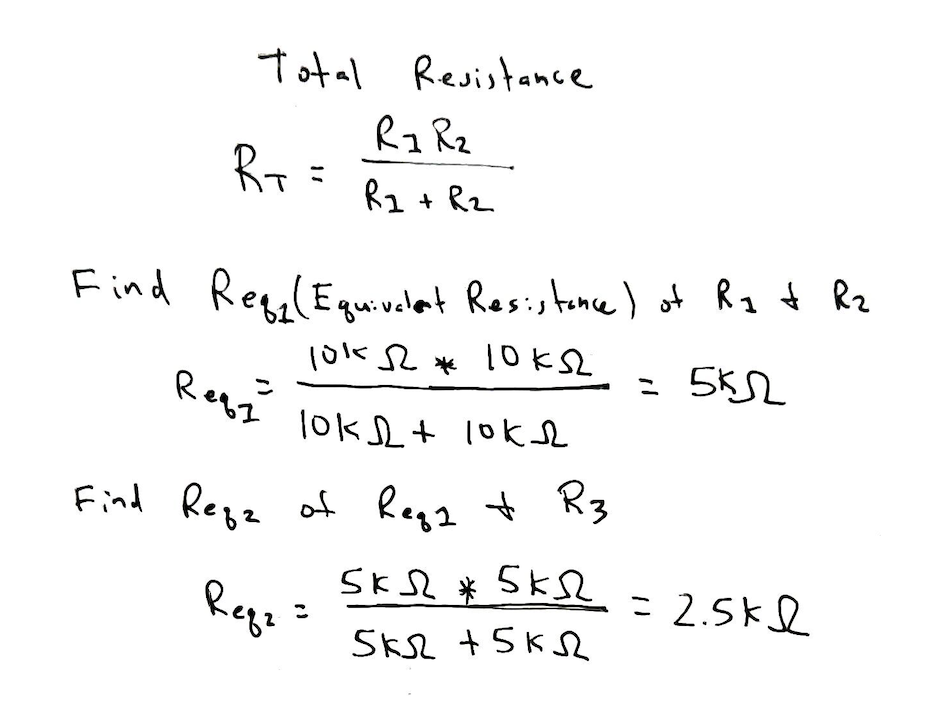 Total Resistance
RT = R1 R2 / R1 + R2
Find Req1 (Equivalent Resistance) of R1 & R2
Req1 = 10kΩ * 10kΩ / 10kΩ + 10kΩ = 5kΩ
Find Req2 of Req1 & R3
Req2 = 5kΩ * 5kΩ / 5kΩ + 5kΩ = 2.5kΩ